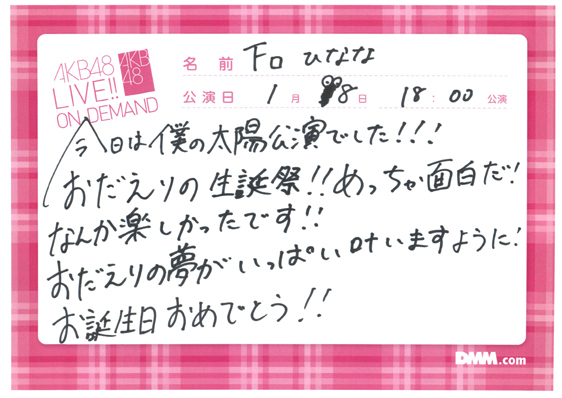 AKB48
LIVE!!
ON DEMAND
AKB
48
名前 下口 ひなな
公演日 1月 8日 18:00 公演
今日は僕の太陽公演でした!!!
おだえりの生誕祭!!めっちゃ面白だ!
なんか楽しかったです!!
おだえりの夢がいっぱい叶いますように!
お誕生日おめでとう!!
DMM.com